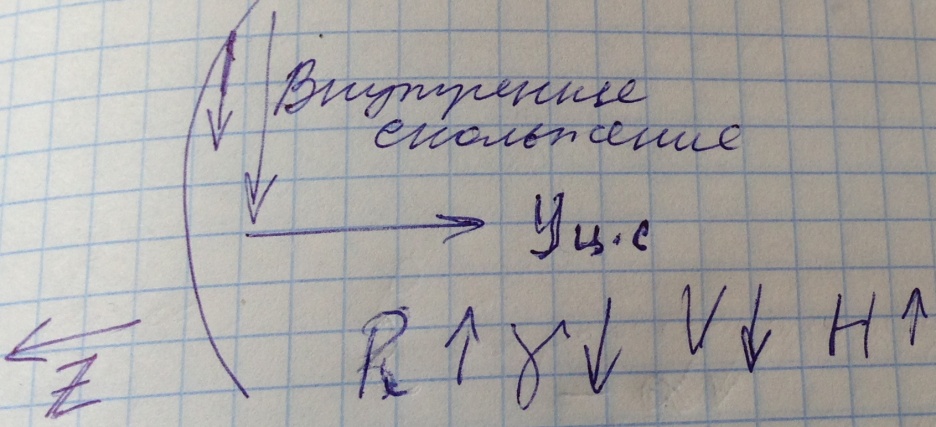 Внутренние
скольжение
Уц.с
R ↑ γ ↓ V ↓ H ↑
Z